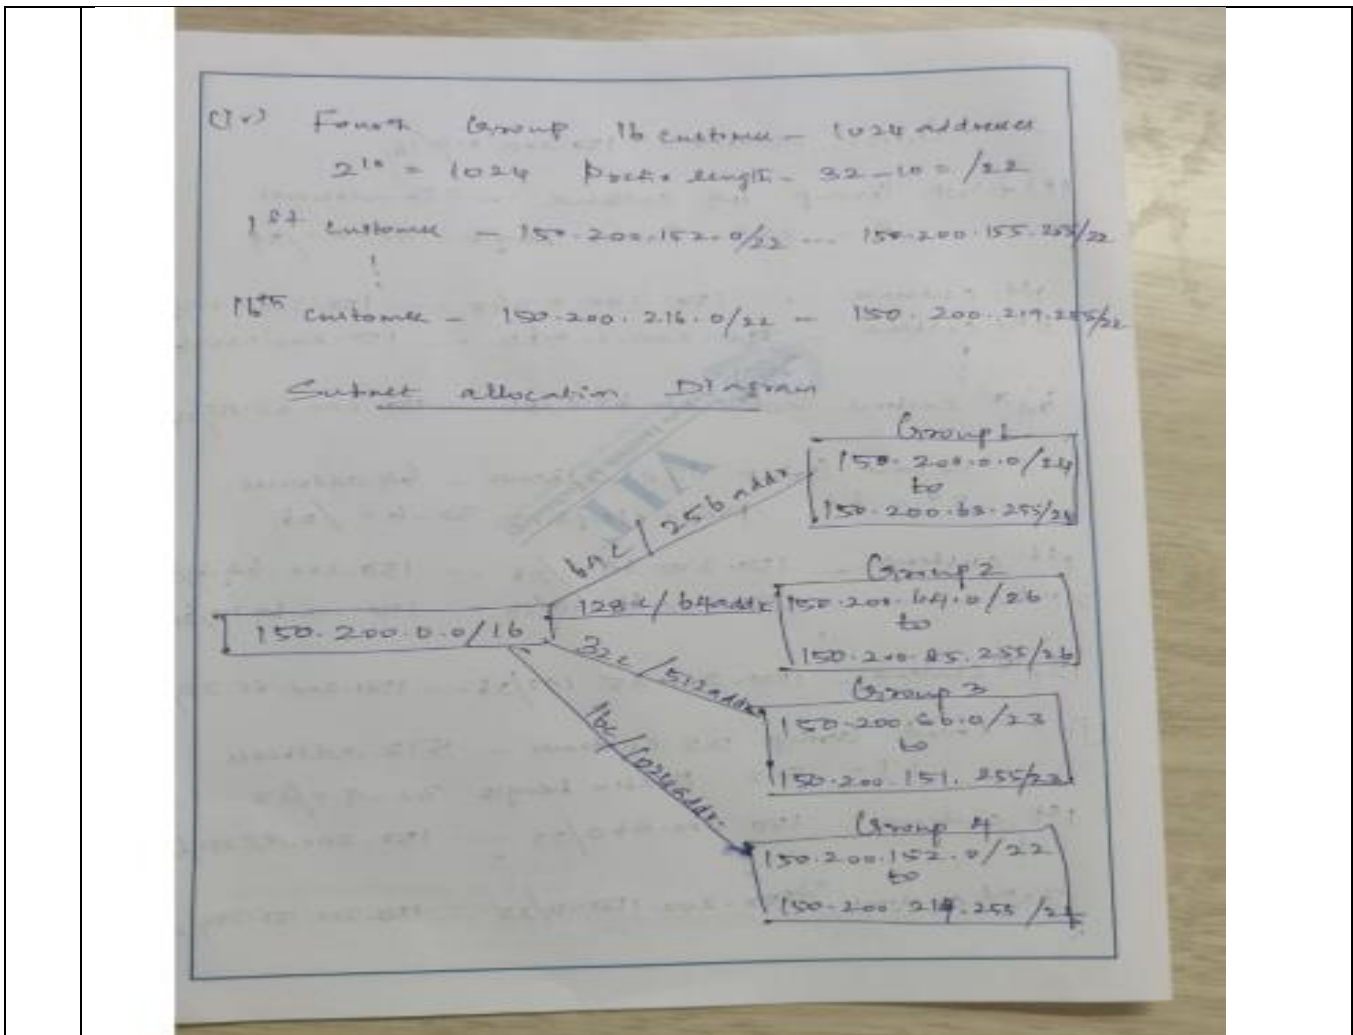 (iv) Fourth Group 16 customer - 1024 addresses
2^10 = 1024 Prefix length - 32-10 = /22
1st customer - 150.200.152.0/22 --- 150.200.155.255/22
16th customer - 150.200.216.0/22 - 150.200.219.255/22
Subnet allocation Diagram
Group 1
150.200.0.0/24
to
150.200.63.255/24
64c/256 addr
Group 2
128c/64addr
150.200.64.0/26
to
150.200.85.255/26
150.200.0.0/16
32c/512addr
Group 3
150.200.86.0/23
to
150.200.151.255/23
16c/1024addr
Group 4
150.200.152.0/22
to
150.200.219.255/22
VIT